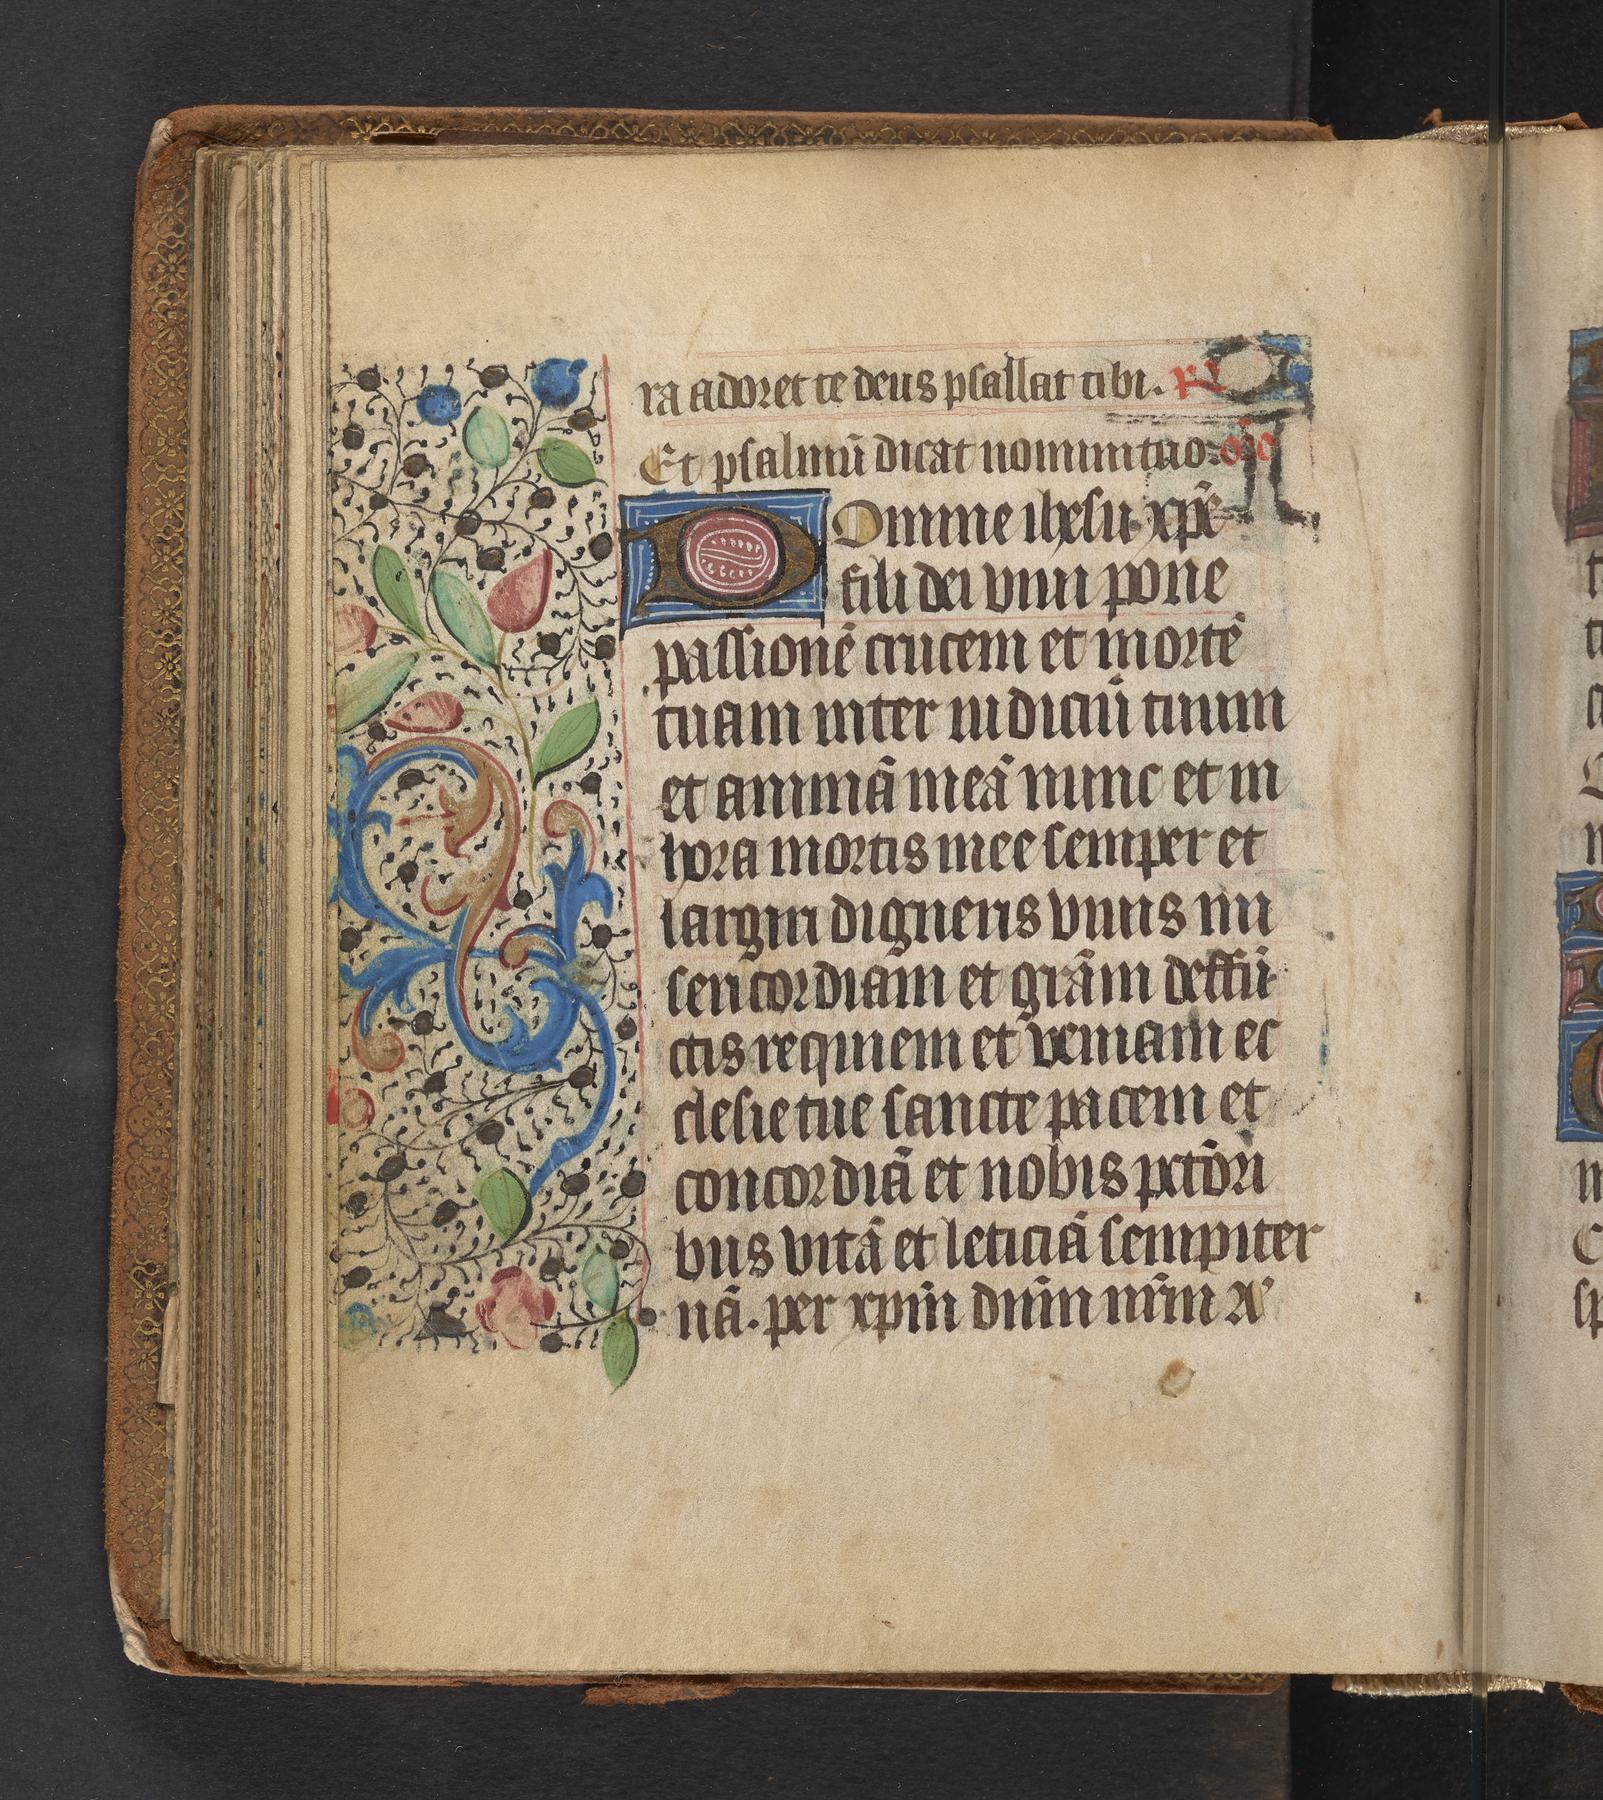 ra adoret te deus psallat tibi. R
Et psalmū dicat nomini tuo. oro
Domine ihesu xpē
fili dei viui pone
passionē crucem et mortē
tuam inter iudiciū tuum
et animā meā nunc et in
hora mortis mee semper et
largiri digneris viuis mi
sericordiam et grām deffū
ctis requiem et veniam ec
clesie tue sancte pacem et
concordiā et nobis pctōri
bus vitā et leticiā sempiter
nā. per xpm̄ dnm̄ nrm̄ A